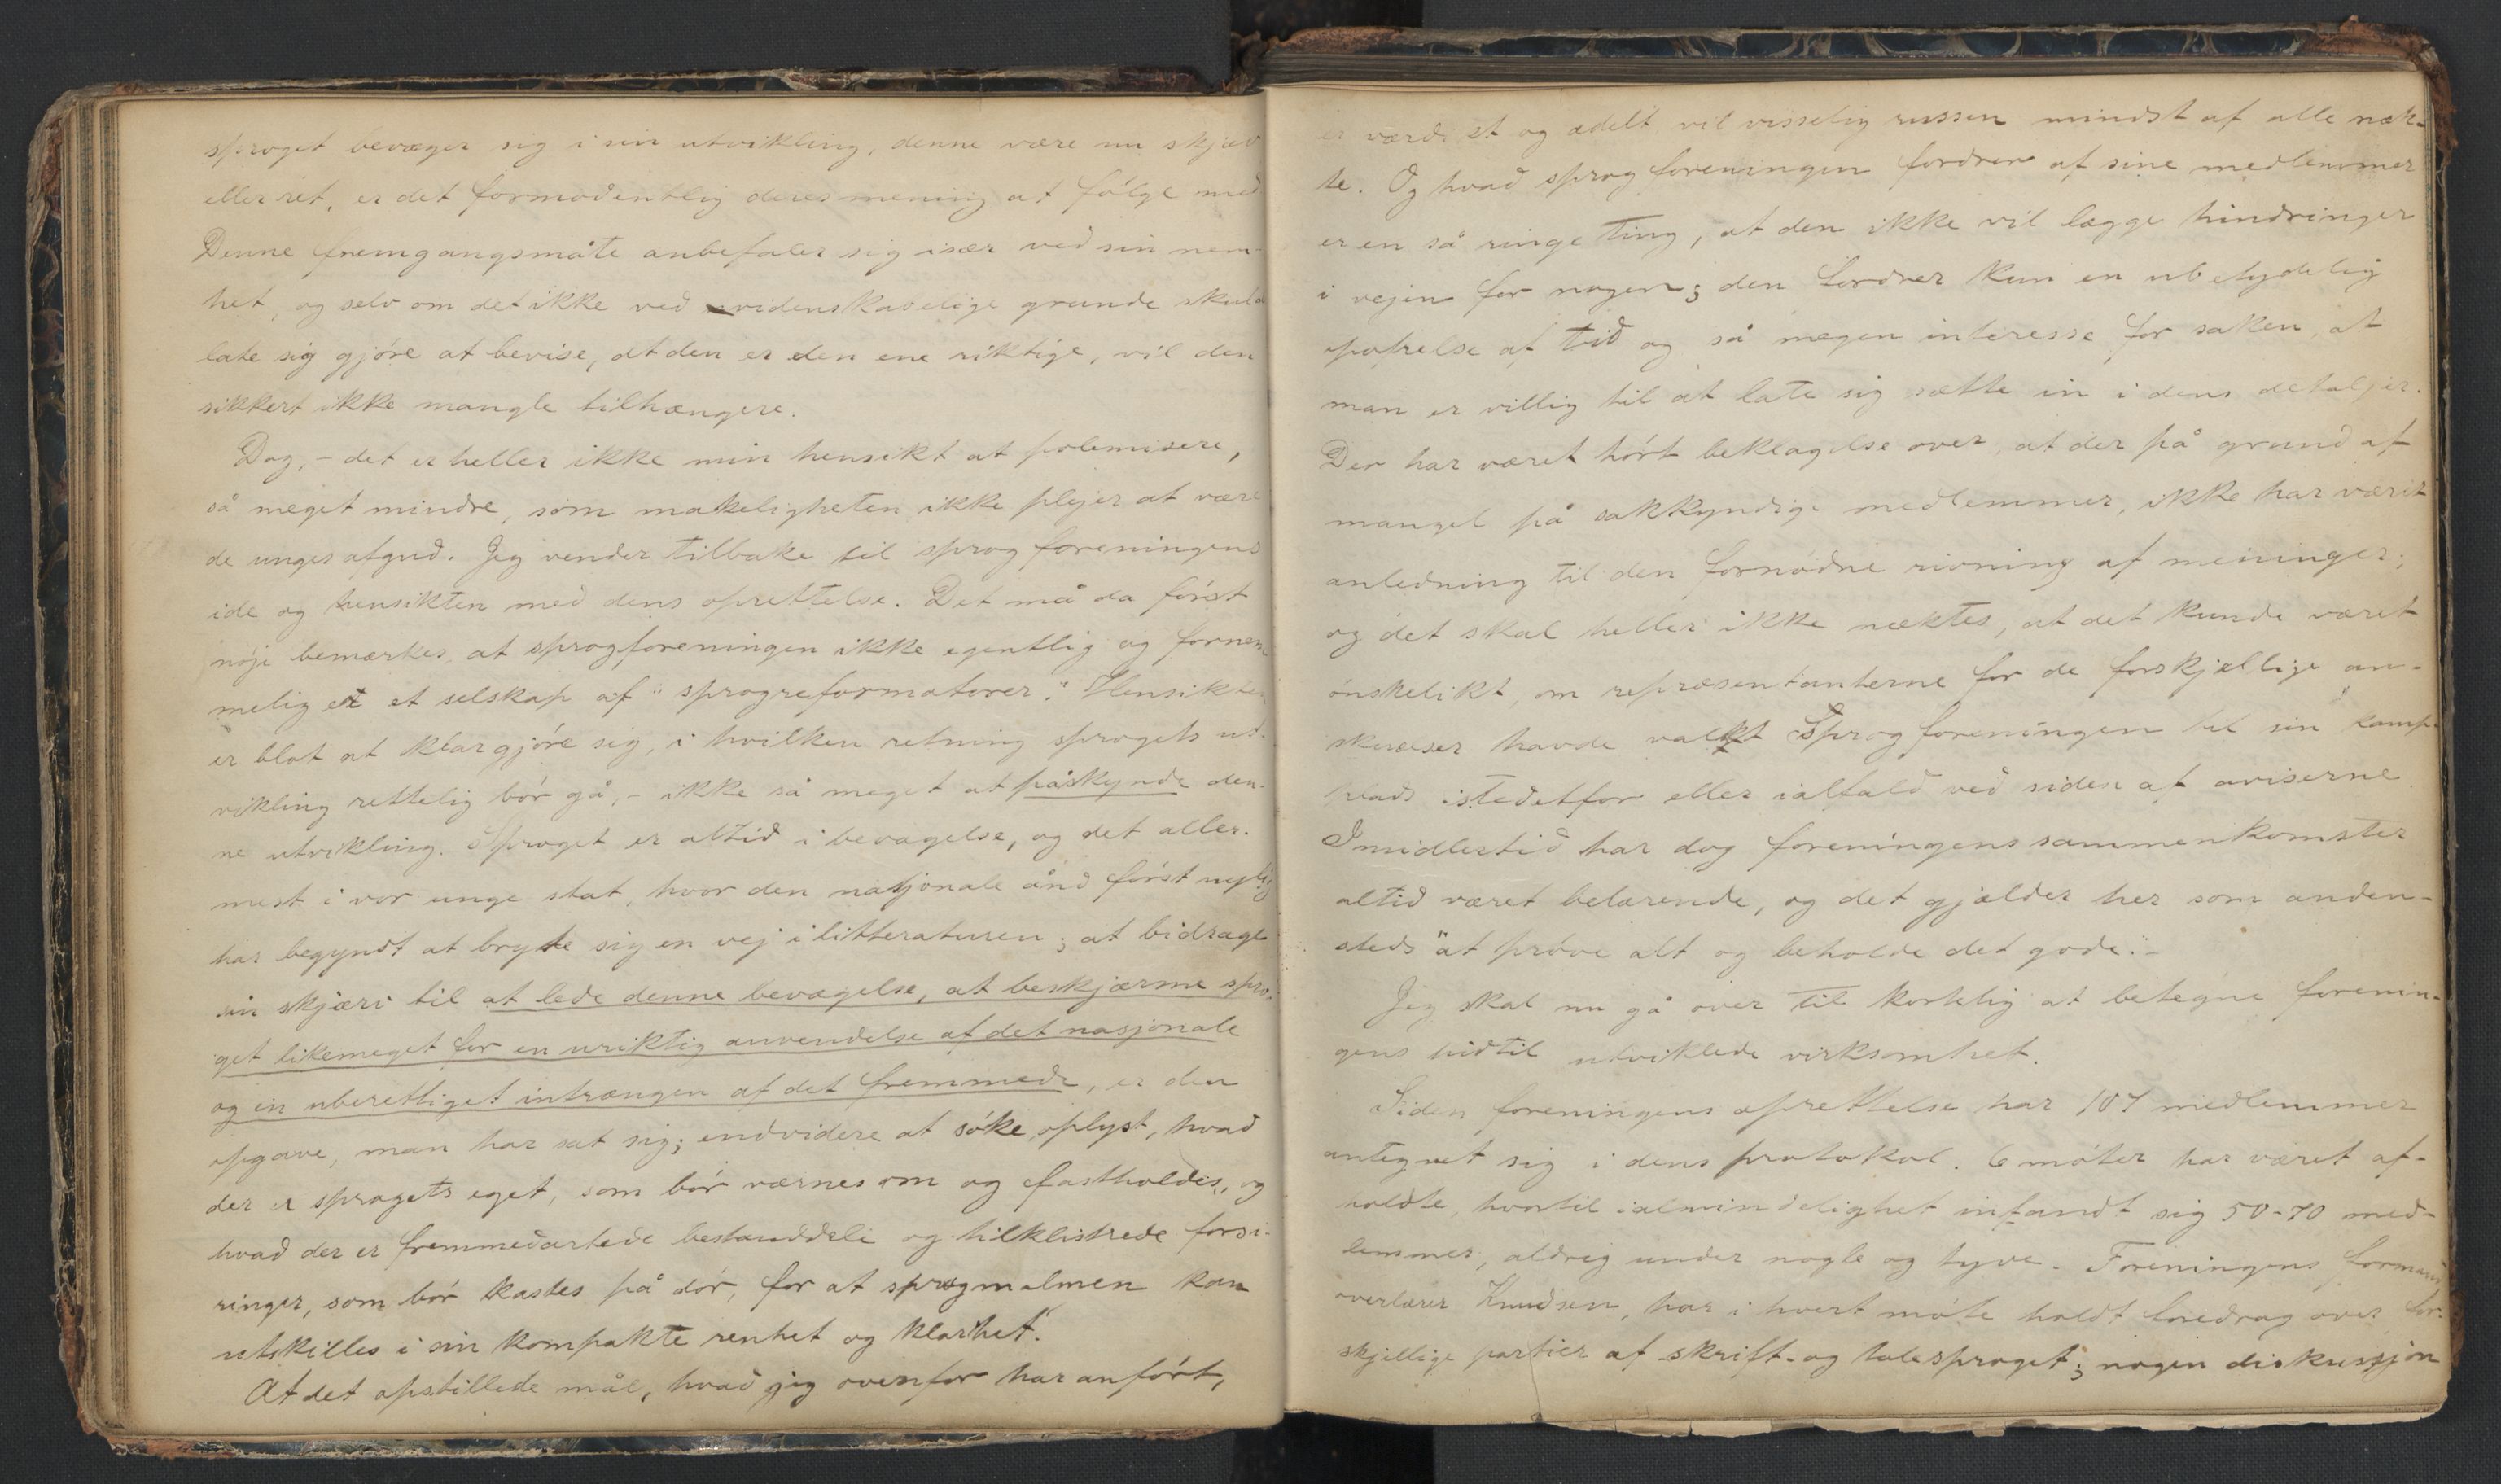 sproget bevæger sig i sin utvikling, denne være nu skjæv
eller ret, er det formodentlig deres mening at følge med
Denne fremgangsmåte anbefaler sig især ved sin nem-
het, og selv om det ikke ved videnskabelige grunde skulde
late sig gjøre at bevise, at den er den ene riktige, vil den
sikkert ikke mangle tilhængere.
Dog, - det er heller ikke min hensikt at polemisere,
så meget mindre, som makeligheten ikke plejer at være
de unges afgud. Jeg vender tilbake til sprogforeningens
ide og hensikten med dens oprettelse. Det må da først
nøje bemærkes, at sprogforeningen ikke egentlig og fornem
melig er et selskap af "sprogreformatorer." Hensikten
er blot at klargjøre sig, i hvilken retning sprogets ut-
vikling rettelig bør gå, - ikke så meget at påskynde den-
ne utvikling. Sproget er altid i bevægelse, og det aller-
mest i vor unge stat, hvor den nasjonale ånd først nylig
har begyndt at bryte sig en vej i litteraturen; at bidrage
sin skjærv til at lede denne bevægelse, at beskjærme spro-
get likemeget for en uriktig anvendelse af det nasjonale
og en uberettiget intrængen af det fremmede, er den
opgave, man har sat sig; endvidere at søke oplyst, hvad
der er sprogets eget, som bør værnes om og fastholdes, og
hvad der er fremmedartede bestanddele og tilklistrede forsi-
ringer, som bør kastes på dør, for at sprogmalmen kan
utskilles i sin kompakte renhet og klarhet."
At det opstillede mål, hvad jeg ovenfor har anført,
er værdi et og ædelt vil visselig russen mindst af alle næk-
te. Og hvad sprogforeningen fordrer af sine medlemmer
er en så ringe ting, at den ikke vil lægge hindringer
i vejen for nogen; den fordrer kun en ubetydelig
opofrelse af tid og så megen interesse for saken, at
man er villig til at late sig sætte in i dens detaljer.
Der har været hørt beklagelse over, at der på grund af
mangel på sakkyndige medlemmer, ikke har været
anledning til den fornødne rivning af meninger;
og det skal heller ikke næktes, at det kunde været
ønskelikt, om repræsentanterne for de forskjællige an-
skuelser havde valgt Sprogforeningen til sin kamp-
plads istedetfor eller ialfald ved siden af aviserne
Imidlertid har dog foreningens sammenkomster
altid været belærende, og det gjælder her som anden-
steds "at prøve alt og beholde det gode." -
Jeg skal nu gå over til kortelig at betegne forenin-
gens hidtil utviklede virksomhet.
Siden foreningens oprettelse har 107 medlemmer
antegnet sig i dens protokol. 6 møter har været af-
holdte, hvortil i almindelighet infandt sig 50-70 med-
lemmer, aldrig under nogle og tyve. Foreningens formand
overlærer Knudsen, har i hvert møte holdt foredrag over for-
skjellige partier af skrift- og talesproget; nogen diskusjon